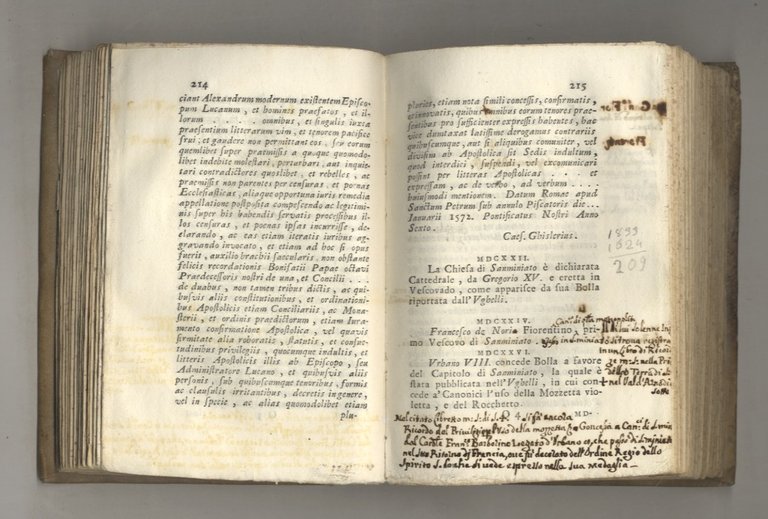 214
ciant Alexandrum modernum existentem Episco-
pum Lucanum, et homines praefatos, et il-
lorum . . . . . omnibus, et singulis iuxta
praesentium litterarum vim, et tenorem pacifice
frui, et gaudere non permittant eos, seu eorum
quemlibet super praemissis a quoque quomodo-
libet indebite molestari, perturbari, aut inquie-
tari contradictores quoslibet, et rebelles, ac
praemissis non parentes per censuras, et poenas
Ecclesiasticas, aliaque opportuna iuris remedia
appellatione postposita compescendo ac legitimi-
nis super his habendis servatis processibus il-
los censuras, et poenas ipsas incurrisse, de-
clarando, ac eas etiam iteratis iuribus ag-
gravando invocato, et etiam ad hoc si opus
fuerit, auxilio brachii saecularis. non obstante
felicis recordationis Bonifatii Papae octavi
Praedecessoris nostri de una, et Concilii . . .
de duabus, non tamen tribus dictis, ac qui-
busvis aliis constitutionibus, et ordinationi-
bus Apostolicis etiam Conciliariis, ac Mona-
sterii, et ordinis praedictorum, etiam Iura-
mento confirmatione Apostolica, vel quavis
firmitate alia roboratis, statutis, et consue-
tudinibus privilegiis, quocumque indultis, et
litteris Apostolicis illis ab Episcopo, seu
Administratore Lucano, et quibusvis aliis
personis, sub quibuscumque tenoribus, formis
ac clausulis irritantibus, decretis ingenere,
vel in specie, ac alias quomodolibet etiam
plu-
215
plaries, etiam nota simili concessis, confirmatis,
et innovatis, quibus omnibus eorum tenores prae-
sentibus pro sufficienter expressis habentes, hac
vice dumtaxat latissime derogamus contrariis
quibuscumque, aut si aliquibus comuniter, vel
divisim ab Apostolica sit Sedis indultum,
quod interdici, suspendi, vel excomunicari
possint per litteras Apostolicas . . . . et
expressam, ac de verbo, ad verbum . . . .
huiusmodi mentionem. Datum Romae apud
Sanctum Petrum sub annulo Piscatoris die...
Januarii 1572. Pontificatus Nostri Anno
Sexto.
Caes. Ghislerius.
1899
1624
209
MDCXXII.
La Chiesa di Sanminiato è dichiarata
Cattedrale, da Gregorio XV. e eretta in
Vescovado, come apparisce da sua Bolla
riportata dall' Vghelli.
MDCXXIV.
Francesco de Noris Fiorentino, pri-
mo Vescovo di Sanminiato.
MDCXXVI.
Vrbano VIII. concede Bolla a favore
del Capitolo di Sanminiato, la quale è
stata pubblicata nell' Vghelli, in cui con-
cede a' Canonici l'uso della Mozzetta vio-
letta, e del Rocchetto.
MD-
nel suo Ritorno di Francia, ove fu decorato dell'Ordine Regio dello
Spirito S. come si vede espresso nella sua medaglia